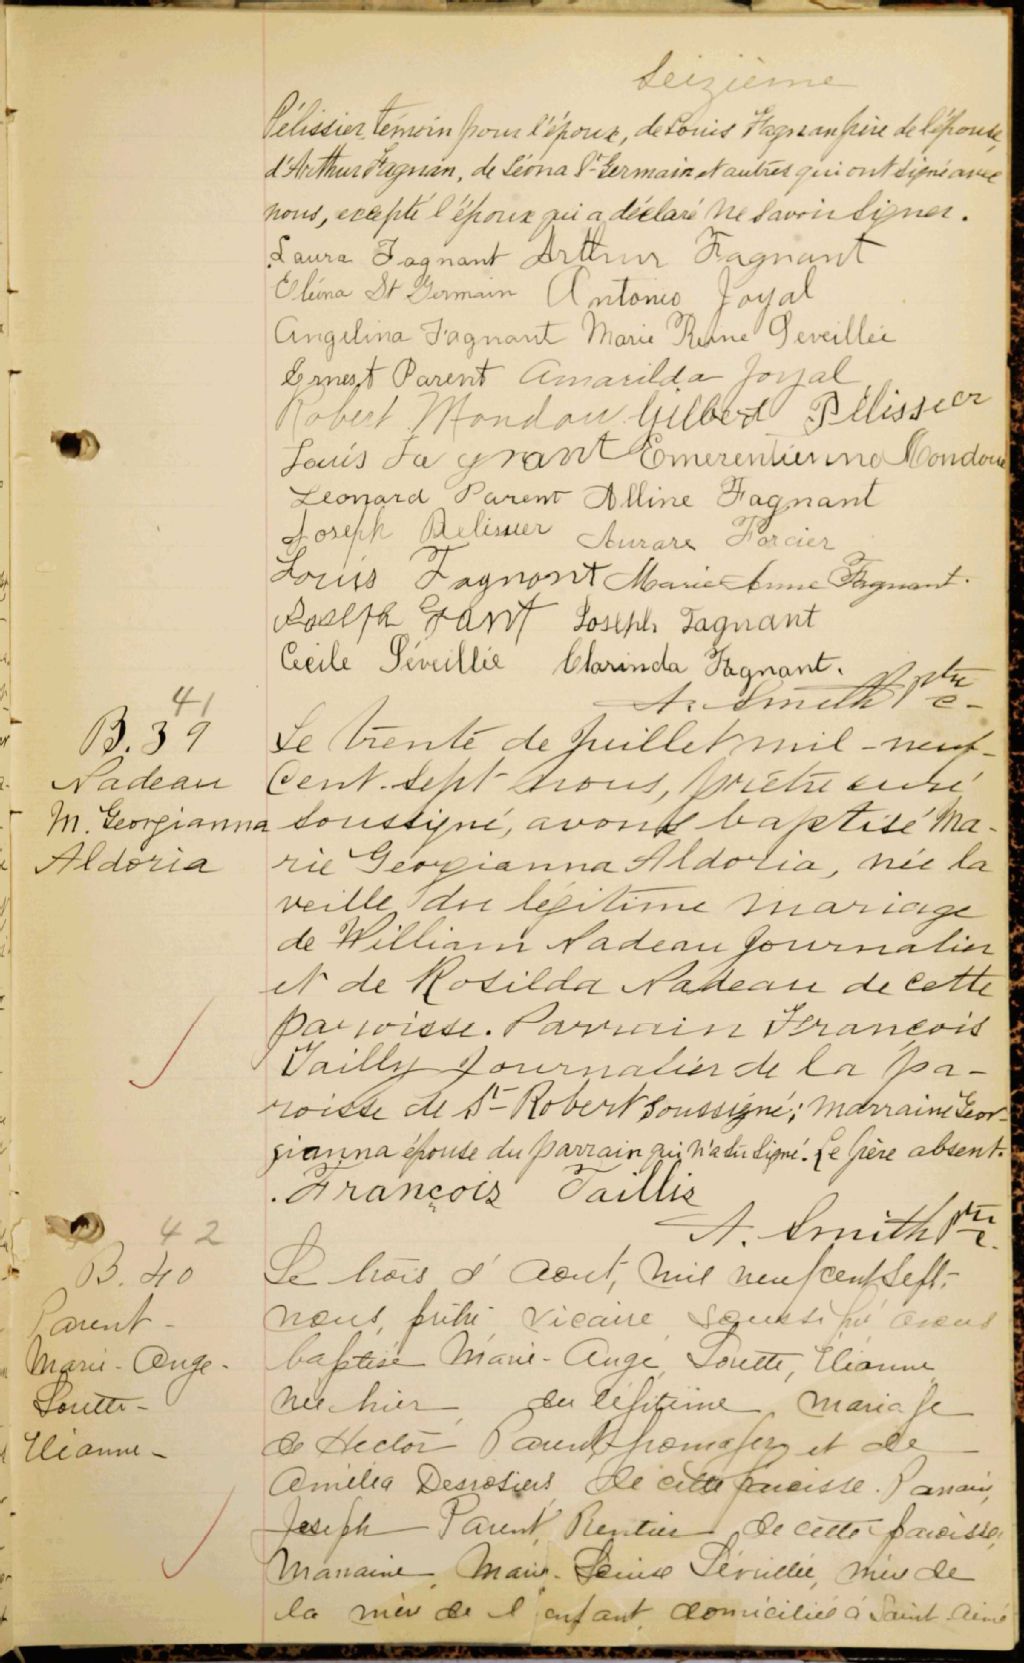 Seizième
Pélissier, témoin pour l'époux, de Louis Fagnan père de l'épouse,
d'Arthur Fagnan, de Léona St-Germain et autres qui ont signé avec
nous, excepté l'époux qui a déclaré ne savoir signer.
Laura Fagnant Arthur Fagnant
Eléona St Germain Antonio Joyal
Angelina Fagnant Marie Reine Seveillée
Ernest Parent Amarilda Joyal
Robert Mondou Gilbert Pélissier
Louis Fagnant Emerentienne Mondoue
Leonard Parent Alline Fagnant
Joseph Pelissier Aurore Forcier
Louis Fagnont Marie Anne Fagnant.
Joseph Joseph Fagnant
Cecile Séveillée Clarinda Fagnant.
A. Smith Ptre
41
B. 39
Nadeau
M. Georgianna
Aldoria
Le trente de Juillet mil-neuf-
cent-sept nous, prêtre curé
soussigné, avons baptisé Ma-
rie Georgianna Aldoria, née la
veille du légitime mariage
de William Nadeau Journalier
et de Rosilda Nadeau de cette
paroisse. Parrain François
Tailly Journalier de la pa-
roisse de St-Robert soussigné; marraine Geor-
gianna épouse du parrain qui n'a su signé. Le père absent.
François Taillis
A. Smith Ptre
42
B. 40
Parent-
Marie-Ange-
Lorette-
Elianne-
Le trois d'Aout, mil neuf cent sept.
nous, prêtre vicaire soussigné avons
baptisé Marie-Ange, Lorette, Elianne
née hier, du légitime mariage
de Hector Parent, fromager, et de
Amélia Desrosiers de cette paroisse. Parrain,
Joseph Parent, Rentier, de cette paroisse,
Marraine, Marie-Séveillée, mère de
la mère de l'enfant, domiciliée à Saint-Aimé